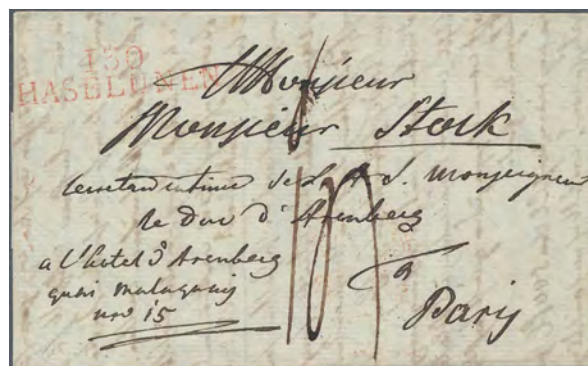 130
HASELUNEN
Monsieur
Monsieur Stock
Secretaire intime de S. A. S. Monseigneur
le Duc d'Arenberg
a l'hotel d'Arenberg
quai malaquais
nro 15
a
Paris